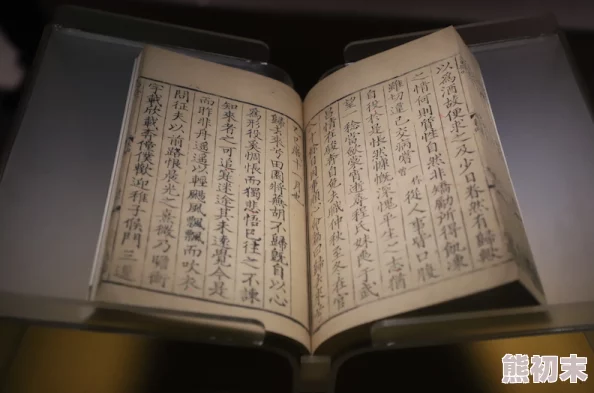 以為酒故便求之及少日眷然有歸歟
之情何則質性自然非矯勵所得飢凍
雖切違已交病嘗從人事皆口腹
自役於是悵然慷慨深愧平生之志猶
望稔當斂裳宵逝尋程氏妹喪于武
昌情在駿奔自免去職仲秋至冬在官
十餘日因事順心命篇曰歸去來兮
巳歲十一月也
歸去來兮田園將蕪胡不歸既自以心
為形役奚惆悵而獨悲悟已往之不諫
知來者之可追寔迷途其未遠覺今是
而昨非舟遙遙以輕颺風飄飄而吹衣
問征夫以前路恨晨光之熹微乃瞻衡
宇載欣載奔僮僕歡迎稚子候門三逕
熊初末